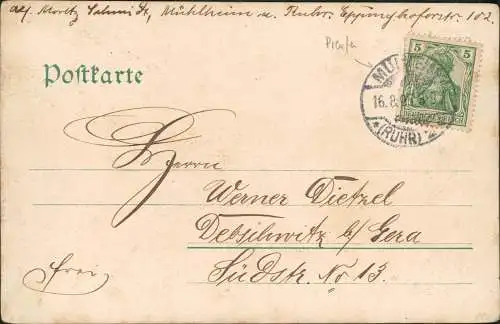 Abs. Moritz Schmidt, Mühlheim a. Ruhr. Eppinghoferstr. 102.
Postkarte
5 5
MÜLHEIM
16.8.
*(RUHR)
Herrn
Werner Dietzel
Debschwitz b/ Gera
frei
Südstr. No 13.